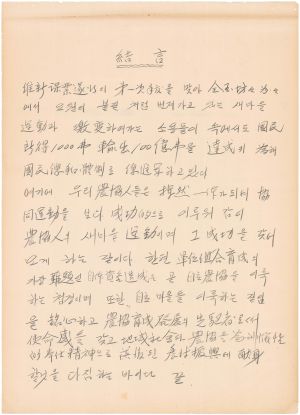 結言
維新課業遂行의 第一次年度을 맞아 全国坊々谷々
에서 요원의 불꽃 처럼 번져가고 있는 새마을
運動과 激変하여가는 소용돌이 속에서도 國民
所得 1000弗 輸出 100億弗을 達成키 爲해
國民總和 體制로
여기에 우리 農協人들은 一体가되어 協
同運動을 보다 成功的으로 이루워 감이
農協人의 새마을 運動이며 그 成功을 앞
當기게 하는 길이다 한편 單位組合育成의
가장 難題인 自己資金造成은 곧 自立農協을 이룩
하는 첩경이며 또한 自立마을을 이룩하는 경영
을 하고 農協育成發展의 先駆者로서
使命感을 갖고 地域社會와 農協을 爲해 犧牲
的 奉仕精神으로 農村振興에 献身
할것을 다짐 하는 바이다 끝